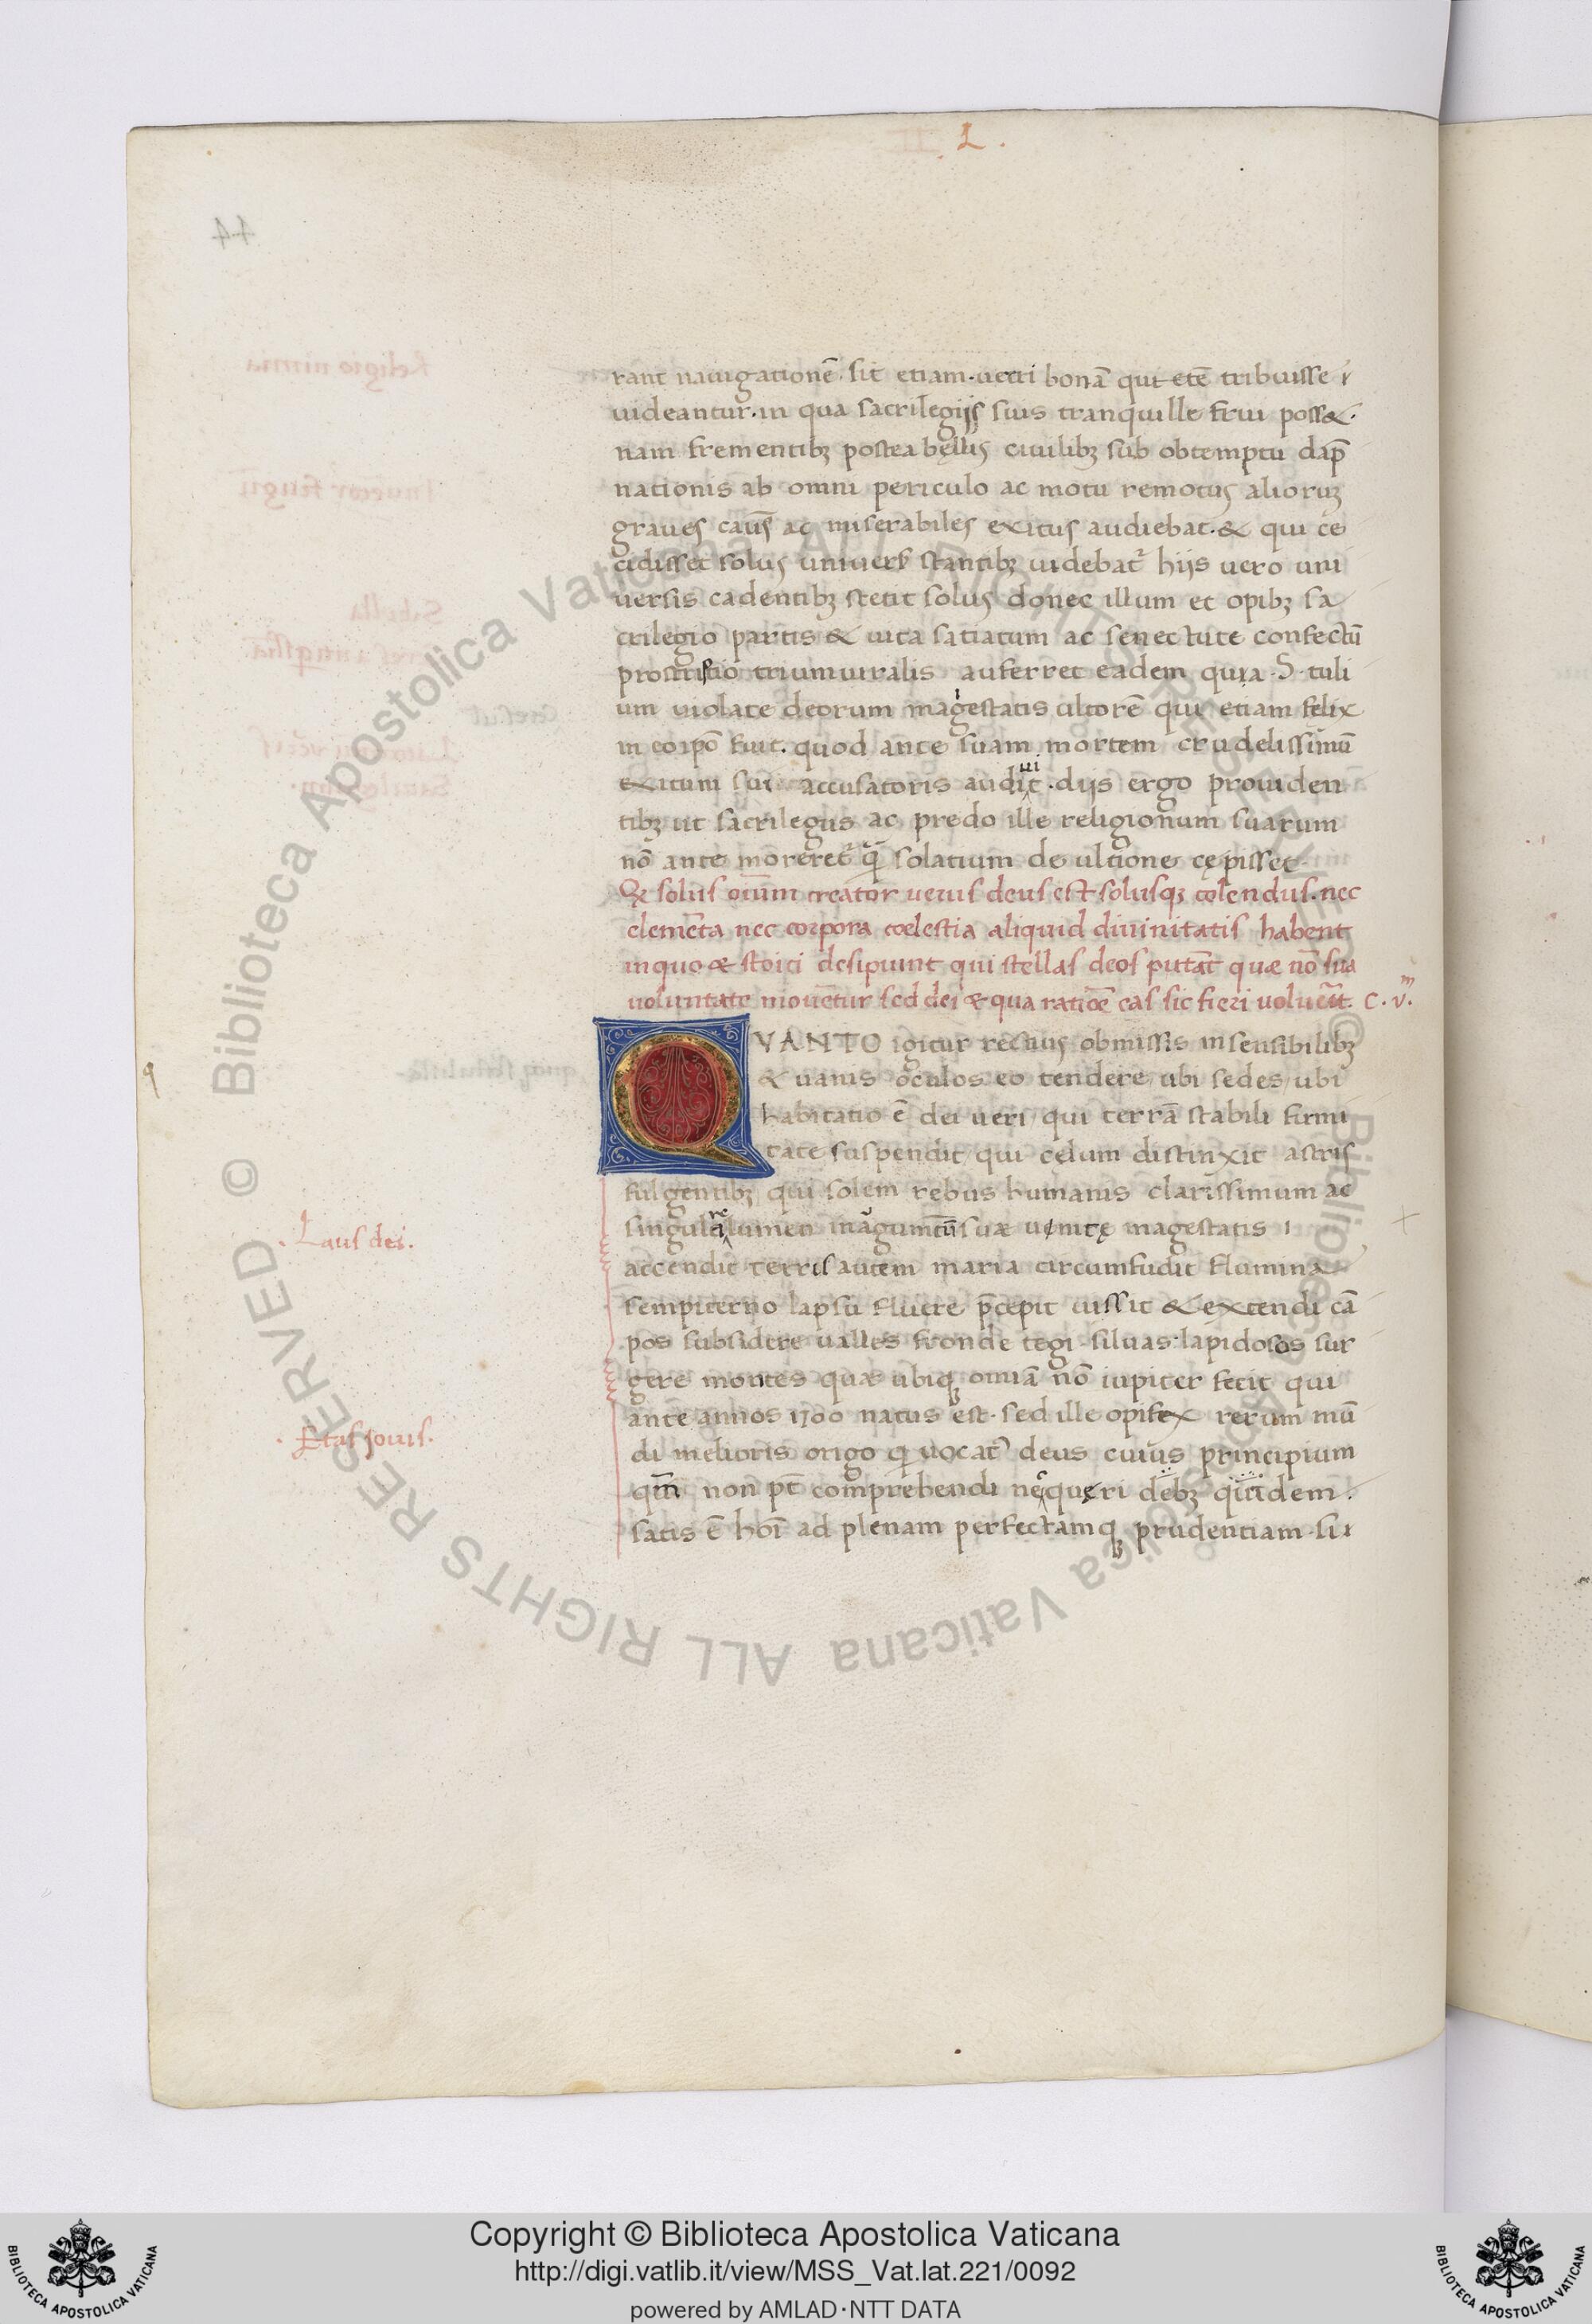 L.
rant nauigationē. sic etiam. uecti bonā qui etē tribuisse
uideantur. in qua sacrilegijs suis tranquille frui poss&.
nam frementibꝫ postea bellis ciuilibꝫ sub obtemptu dāp
nationis ab omni periculo ac motu remotus alioruꝫ
graues ac miserabiles exitus audiebat. & qui ce
cidisset solus uniuersis stantibꝫ uidebat᷑ hijs uero uni
uersis cadentibꝫ stetit solus donec illum et opibꝫ sa
crilegio partis & uita satiatum ac senectute confectū
proscriptio triumuiralis auferret eadem quia .S. tuli
um uiolate deorum magestatis ultorē qui etiam felix
in eo fuit. quod ante suam mortem crudelissimū
exitum sui accusatoris audiuit. dijs ergo prouiden
tibꝫ ut sacrilegus ac predo ille religionum suarum
nō ante moreret᷑ solatium de ultione cępisset.
Q solus oīum creator uerus deus est solusqꝫ colendus. nec
elemēta nec corpora coelestia aliquid diuinitatis habent
in quo & stoici desipiunt qui stellas deos putāt quæ nō sua
uoluntate mouētur sed dei & qua ratiōe eas sic fieri C. vᵐ.
QVANTO igitur rectius obmissis insensibilibꝫ
& uanis oculos eo tendere ubi sedes ubi
habitatio ē dei ueri, qui terrā stabili firmi
tate suspendit, qui celum distinxit astris
fulgentibꝫ qui solem rebus humanis clarissimum ac
singulare lumen in suæ magestatis
accendit terris autem maria circumfudit flumina
sempiterno lapsu fluere p̄cepit iussit & extendi cā
pos subsidere ualles fronde tegi siluas lapidosos sur
gere montes quæ ubiqꝫ omīa nō iupiter fecit qui
ante annos 1700 natus est. sed ille opifex rerum mū
di melioris origo q uocat᷑ deus cuius principium
qm̄ non pt̄ comprehendi nec quęri debꝫ quidem.
satis ē hoī ad plenam perfectamqꝫ prudentiam. si
. Laus dei.
. Etas Jouis.
Copyright © Biblioteca Apostolica Vaticana
http://digi.vatlib.it/view/MSS_Vat.lat.221/0092
powered by AMLAD·NTT DATA
BIBLIOTECA APOSTOLICA VATICANA
BIBLIOTECA APOSTOLICA VATICANA
© Biblioteca Apostolica Vaticana ALL RIGHTS RESERVED © Biblioteca Apostolica Vaticana ALL RIGHTS RESERVED